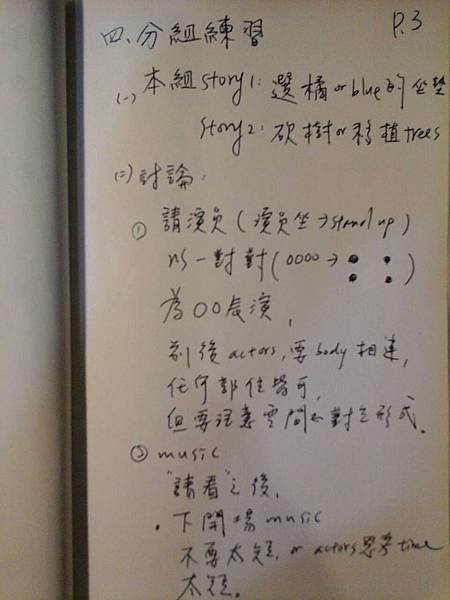 P.3
四、分組練習
(一) 本組story1: 選橘or blue的坐墊
story2: 砍樹or移植trees
(二) 討論:
① 請演員(演員坐→stand up)
ns一對對(0000→
為○○表演,
前後actors,要body相連,
任何部位皆可,
但要注意空間 對立形式.
② music
"請看"之後,
.下開場music
不要太短, or actors思考time
太短.